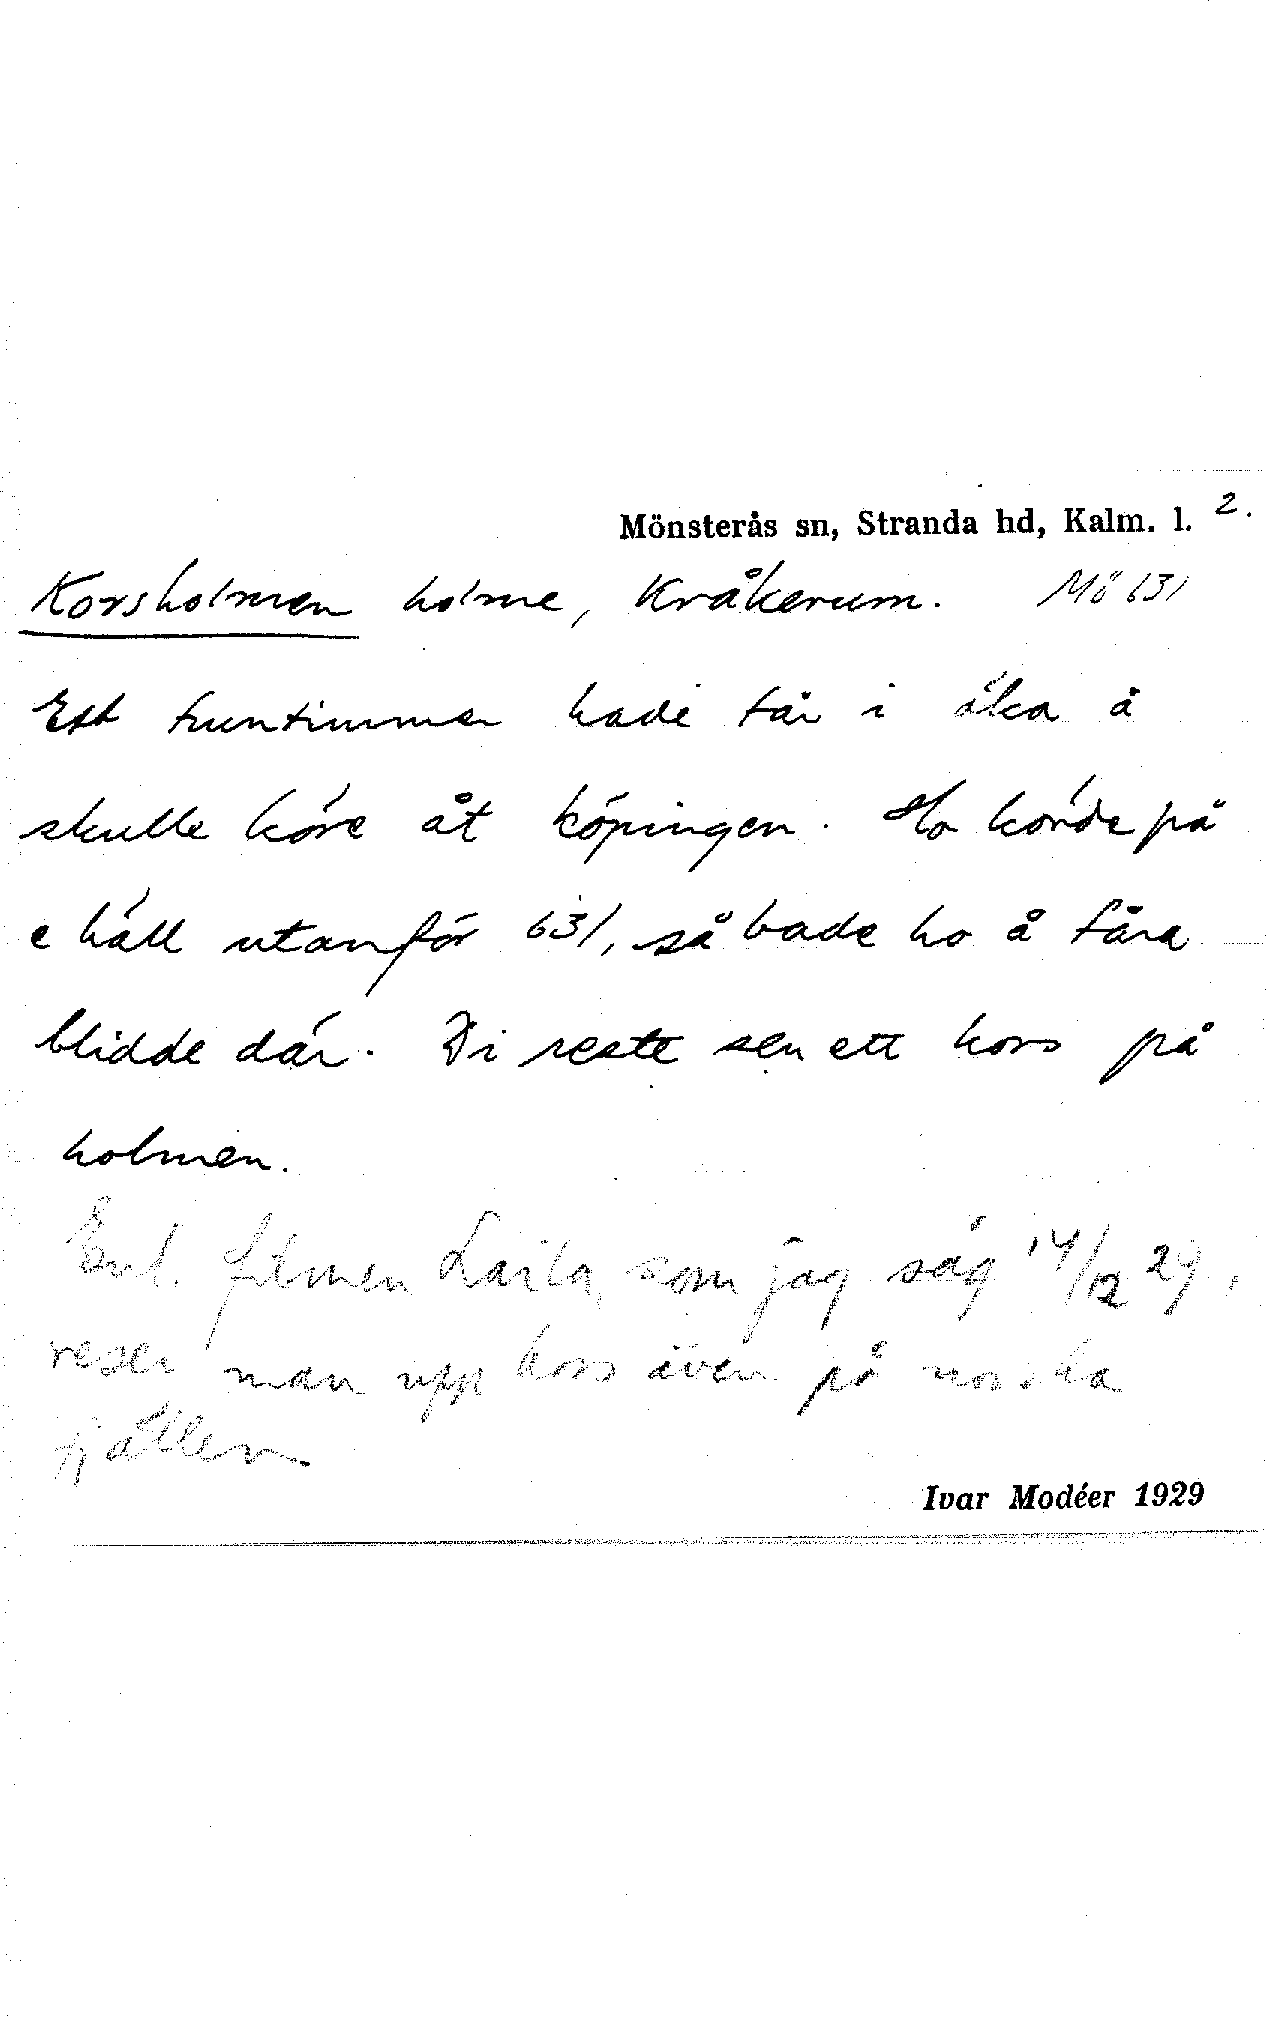 Mönsterås sn, Stranda hd, Kalm. l. 2.
Korsholmen holme, Kråkerum. Mö 631
Ett fruntimmer hade får i öka å
skulle köre åt köpingen. Ho körde på
e häll utanför 631, så bade ho å fåra
blidde där. Di reste sen ett kors på
holmen.
Enl. filmen Laila, som jag såg 14/12 29,
reser man upp kors även på norska
fjällen
Ivar Modéer 1929